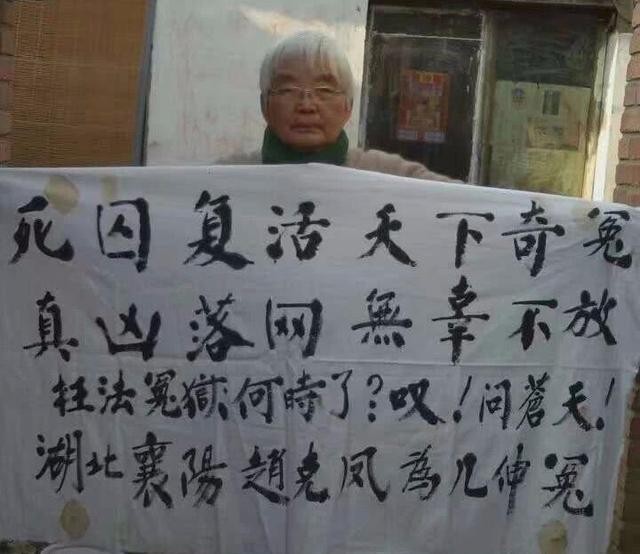 死囚复活天下奇冤
真凶落网無辜不放
枉法冤獄何時了?叹!问蒼天!
湖北襄陽趙克凤為儿伸冤